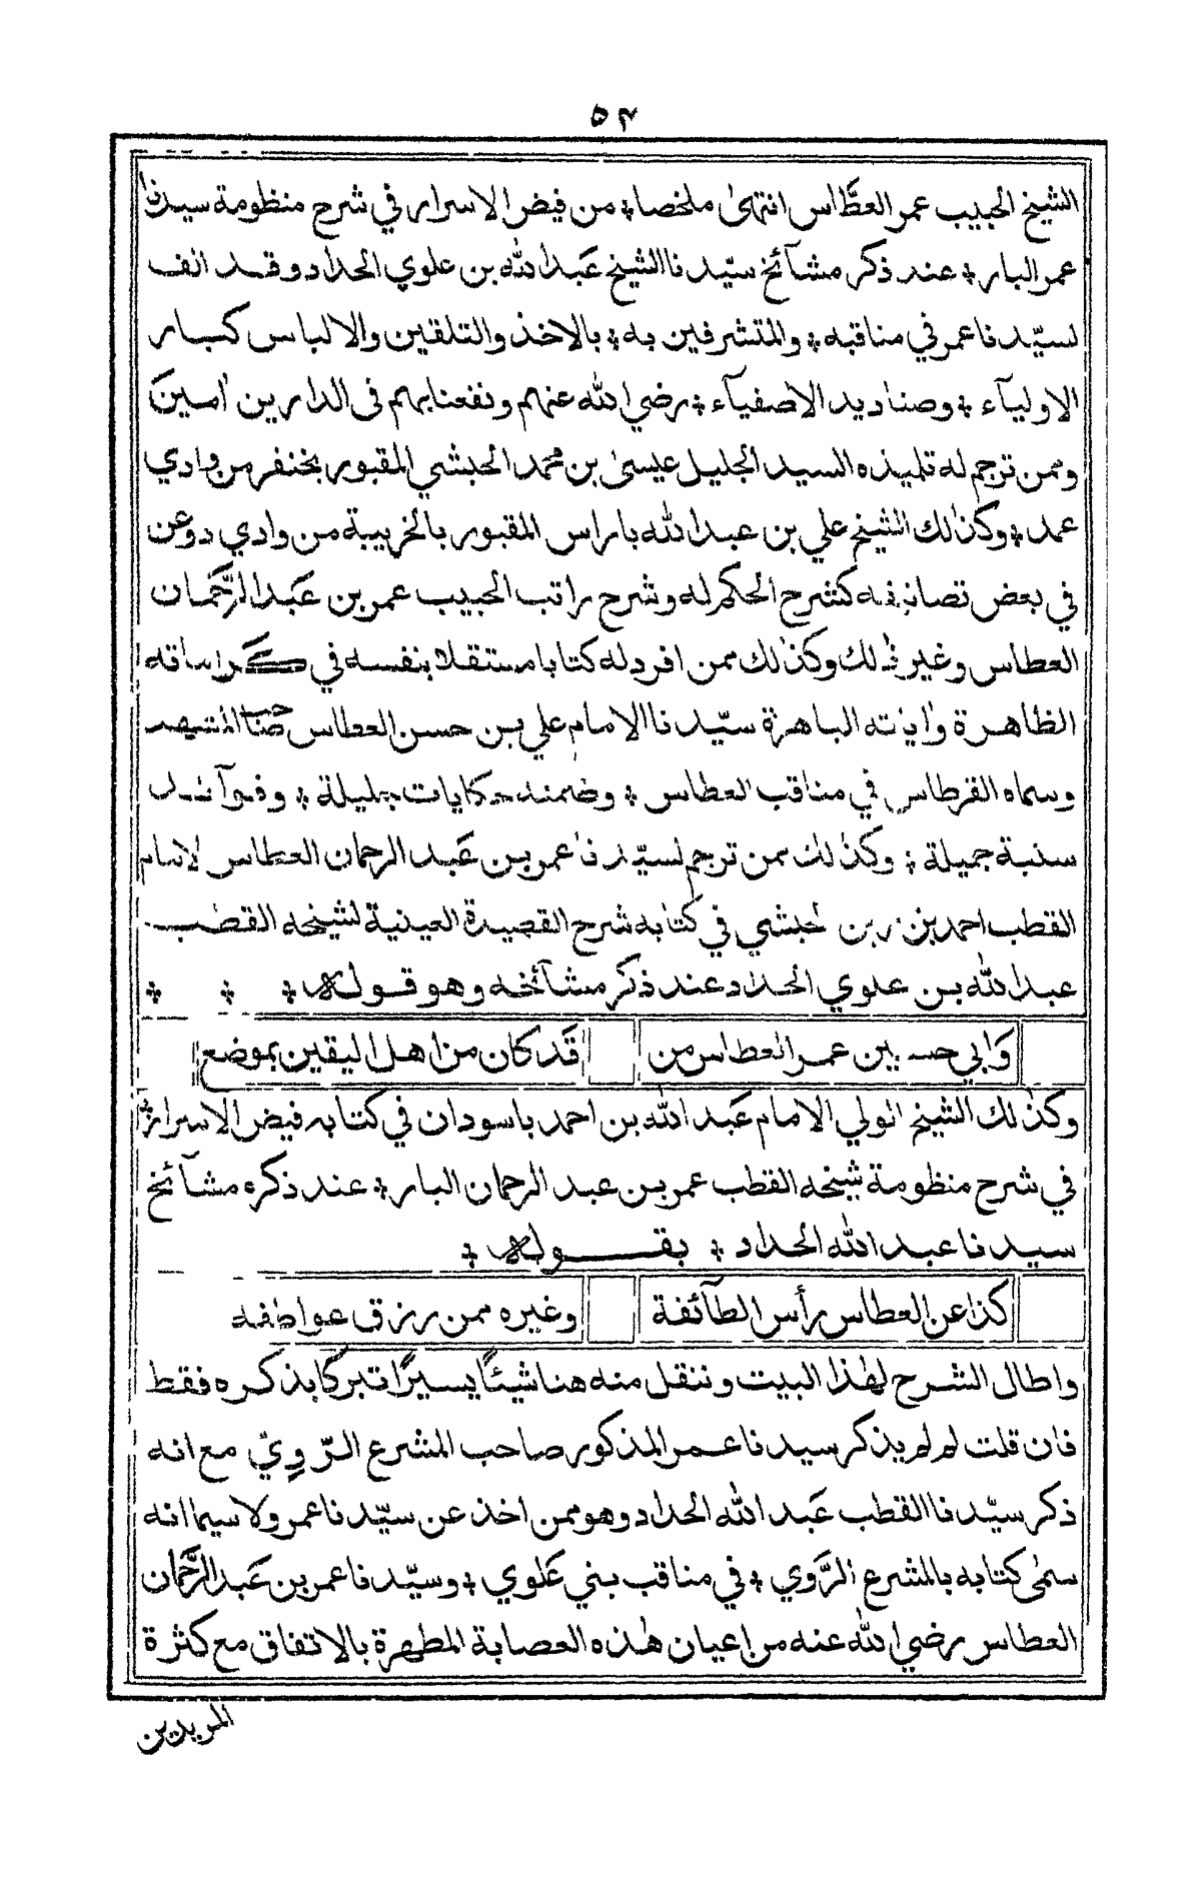 ٥٤
الشيخ الحبيب عمر العطَّاس انتهىٰ ملخصا، من فيض الاسرار في شرح منظومة سيدنا
عمر البار ؞ عند ذكر مشآئخ سيّدنا الشيخ عَبدالله بن علوي الحداد وقد الف
لسيّدنا عمر في مناقبه ؞ والمتشرفين به ؞ بالاخذ والتلقين والالباس كبار
الاوليآء ؞ وصناديد الاصفيآء ؞ رضي الله عنهم ونفعنا بهم فى الدارين اٰمينَ
وممن ترجم له تلميذه السيد الجليل عيسىٰ بن محمد الحبشي المقبور بخنفر من وادي
عمد ؞ وكذٰلك الشيخ علي بن عبدالله باراس المقبور بالخريبة من وادي دوعن
في بعض تصانيفه كشرح الحكم له وشرح راتب الحبيب عمر بن عَبدالرَّحمان
العطاس وغير ذٰلك وكذٰلك ممن افرد له كتابا مستقلا بنفسه في كراماته
الظاهرة واٰياته الباهرة سيّدنا الامام علي بن حسن العطاس صاحب المشهد
وسماه القرطاس في مناقب العطاس ؞ وضمنه حكايات جليلة ؞ وفوآئد
سنية جميلة ؞ وكذٰلك ممن ترجم لسيّدنا عمر بن عَبد الرحمان العطاس الامام
القطب احمد بن زين الحبشي في كتابه شرح القصيدة العينية لشيخه القطب
عبدالله بن علوي الحداد عند ذكر مشآئخه وهو قوله ؞ ؞ ؞
وَابي حسين عمر العطاس من قَد كان من اهل اليقين بموضع
وكذٰلك الشيخ الولي الامام عَبد الله بن احمد باسودان في كتابه فيض الاسرار
في شرح منظومة شيخه القطب عمر بن عبد الرحمان البار ؞ عند ذكره مشآئخ
سيدنا عبد الله الحداد ؞ بقوله ؞
كذا عن العطاس رأس الطآئفة وغيره ممن رزق عواطفه
واطال الشرح لهٰذا البيت وننقل منه هنا شيئًا يسيرًا تبركا بذكره فقط
فان قلت لم لم يذكر سيدنا عمر المذكور صاحب المشرع الرّوِيّ مع انه
ذكر سيّدنا القطب عَبد الله الحداد وهو ممن اخذ عن سيّدنا عمر ولا سيما انه
سمىٰ كتابه بالمشرع الرَّوي ؞ في مناقب بني عَلوي ؞ وسيّدنا عمر بن عَبدالرَّحمان
العطاس رضي الله عنه من اعيان هٰذه العصابة المطهرة بالاتفاق مع كثرة
المريدين